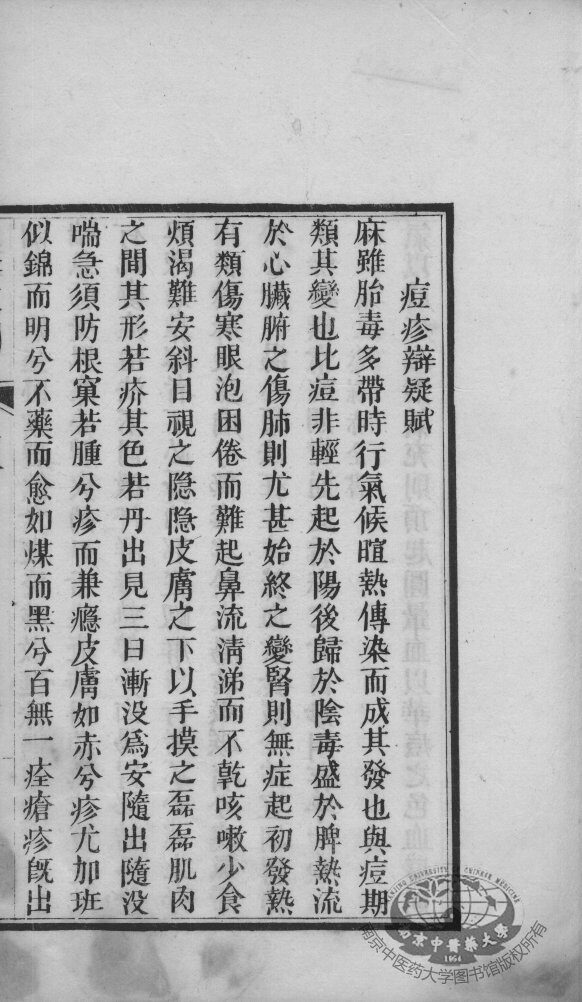 痘疹辯疑賦
麻雖胎毒多帶時行氣候暄熱傳染而成其發也與痘期
類其變也比痘非輕先起於陽後歸於陰毒盛於脾熱流
於心臟腑之傷肺則尤甚始終之變腎則無症起初發熱
有類傷寒眼泡困倦而難起鼻流清涕而不乾咳嗽少食
煩渴難安斜目視之隱隱皮膚之下以手摸之磊磊肌肉
之間其形若疥其色若丹出見三日漸没為安隨出隨没
喘急須防根窠若腫兮疹而兼癮皮膚如赤兮疹尤加班
似錦而明兮不藥而愈如煤而黑兮百無一痊瘡疹旣出
南京中醫藥大學
NANJING UNIVERSITY OF CHINESE MEDICINE
1954
南京中医药大学图书馆版权所有